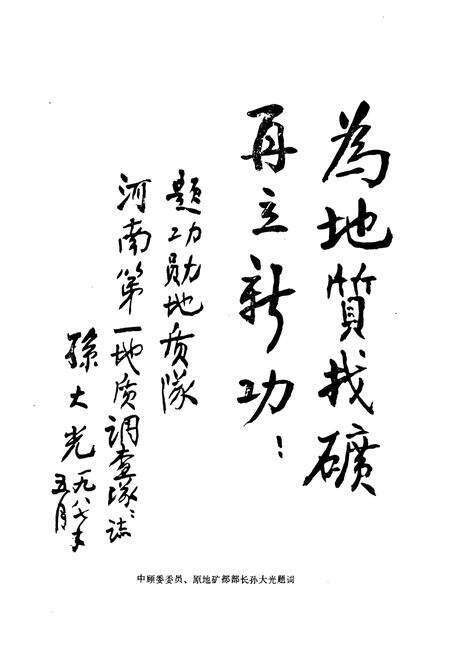 為地質找礦
再立新功！
题功勛地质隊
河南第一地质调查隊隊誌
孫大光
一九八七年
五月
中顾委委员、原地矿部部长孙大光题词